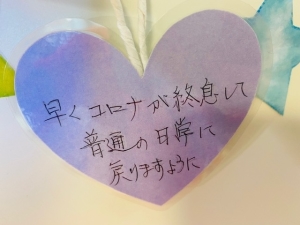 早くコロナが終息して
普通の日常に
戻りますように